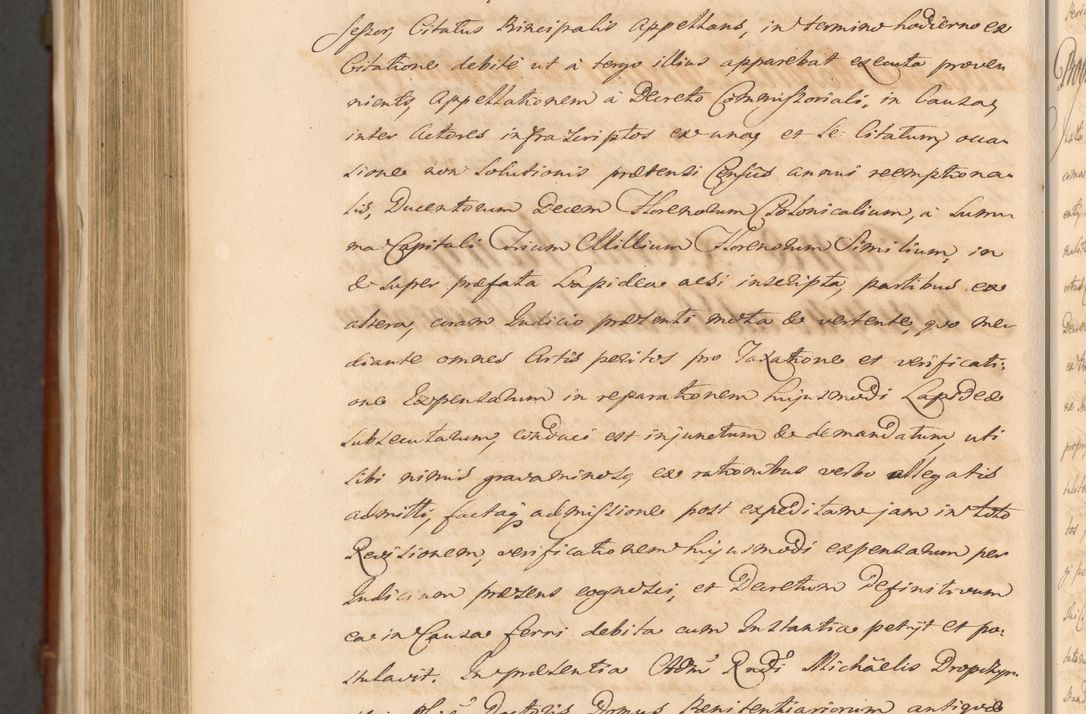 sessor, Citatus Principalis Appellans, in termino hodierno ex
Citatione debitè ut à tergo illius apparebat executa proven
niente, Appellationem à Decreto Commissoriali, in Causa,
inter Actores infrascriptos ex una, et Se Citatum, occa-
sione non Solutionis prætensi Censûs annui reemptiona-
lis, Ducentorum Decem Florenorum Polonicalium, à Sum-
ma Capitali Trium Millium Florenorum Similium, in
& super præfata Lapidea aesi inscripta, partibus ex
altera, coram Judicio præsenti mota & vertente, quo me-
diante omnes Artis peritos pro Taxatione et verificati-
one Expensarum in reparationem hujusmodi Lapideæ
subsecutarum, conduci est injunctum & demandatum, uti
sibi nimis gravaminosa, ex rationibus verbo allegatis
admitti, factaq admissione post expeditam jam in toto
Revisionem, verificationem hujusmodi expensarum per
Judicium præsens cognosci, et Decretum Definitivum
ea in Causa ferri debita cum Instantia petijt et po-
stulavit. In præsentia Rndi Michaëlis
Doctoris Domus Pænitentiariorum antiquæ